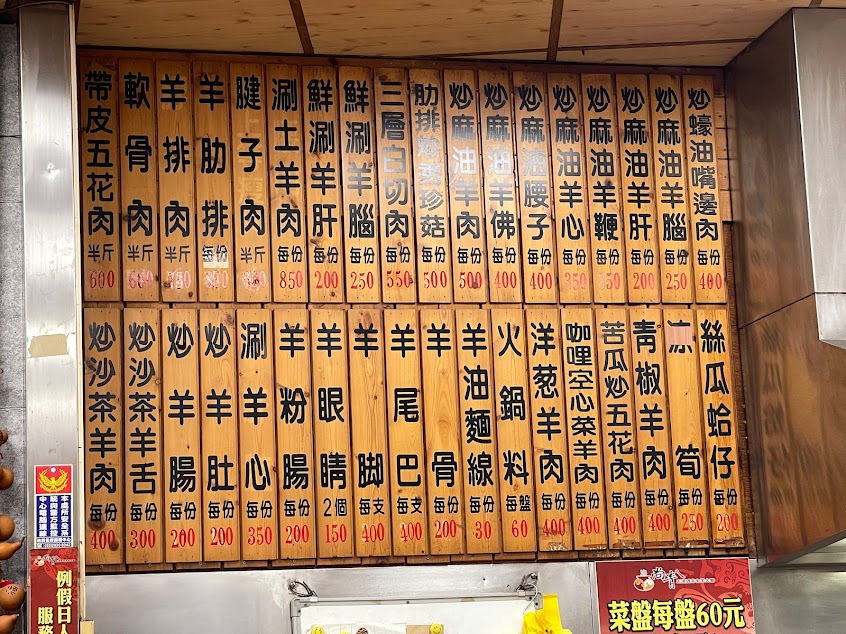 炒蠔油嘴邊肉 每份 400
炒麻油羊腦 每份 250
炒麻油羊肝 每份 200
炒麻油羊鞭 每份 350
炒麻油羊心 每份
炒麻油腰子 每份 400
炒麻油羊佛 每份 400
炒麻油羊肉 每份 500
肋排炒 珍菇 每份 500
三層白切肉 每份 550
鮮涮羊腦 每份 250
鮮涮羊肝 每份 200
涮土羊肉 每份 850
腱子肉 半斤
羊肋排 每份
羊排肉 半斤
軟骨肉 半斤
帶皮五花肉 半斤 600
絲瓜蛤仔 每份 200
筍 每份 250
青椒羊肉 每份 400
苦瓜炒五花肉 每份 400
咖哩空心菜羊肉 每份 400
洋葱羊肉 每份 400
火鍋料 每盤 60
羊油麵線 每份 30
羊骨 每份 200
羊尾巴 每支 400
羊腳 每支 400
羊眼睛 2個 150
羊粉腸 每份 200
涮羊心 每份 350
炒羊肚 每份 200
炒羊腸 每份 200
炒沙茶羊舌 每份 300
炒沙茶羊肉 每份 400
本處所安全系
統與警方監控
中心電腦連線
例假日人
服務
尚青
菜盤每盤60元